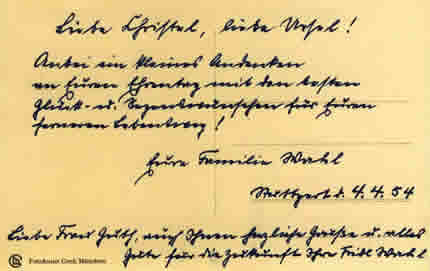 Liebe Christel, liebe Ursel!
Anbei ein kleines Andenken
an Euren Ehrentag mit den besten
Glück- u. Segenswünschen für Euren
ferneren Lebensweg!
Eure Familie Wahl
Stuttgart d. 4.4.54
Liebe Frau Guth, auch Ihnen herzliche Grüße u. alles
Gute für die Zukunft Ihre Fridl Wahl
Fotokunst Groh München